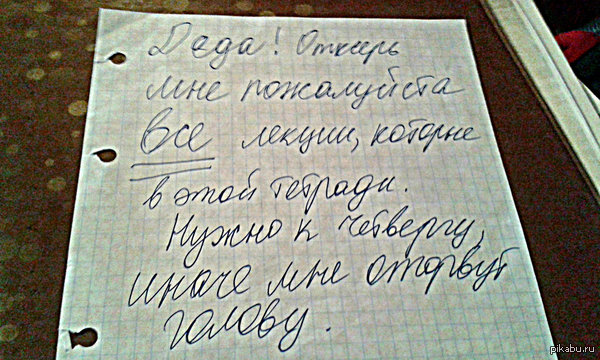 Деда! Отксерь
мне пожалуйста
все лекции, которые
в этой тетради.
Нужно к четвергу,
иначе мне оторвут
голову.
pikabu.ru